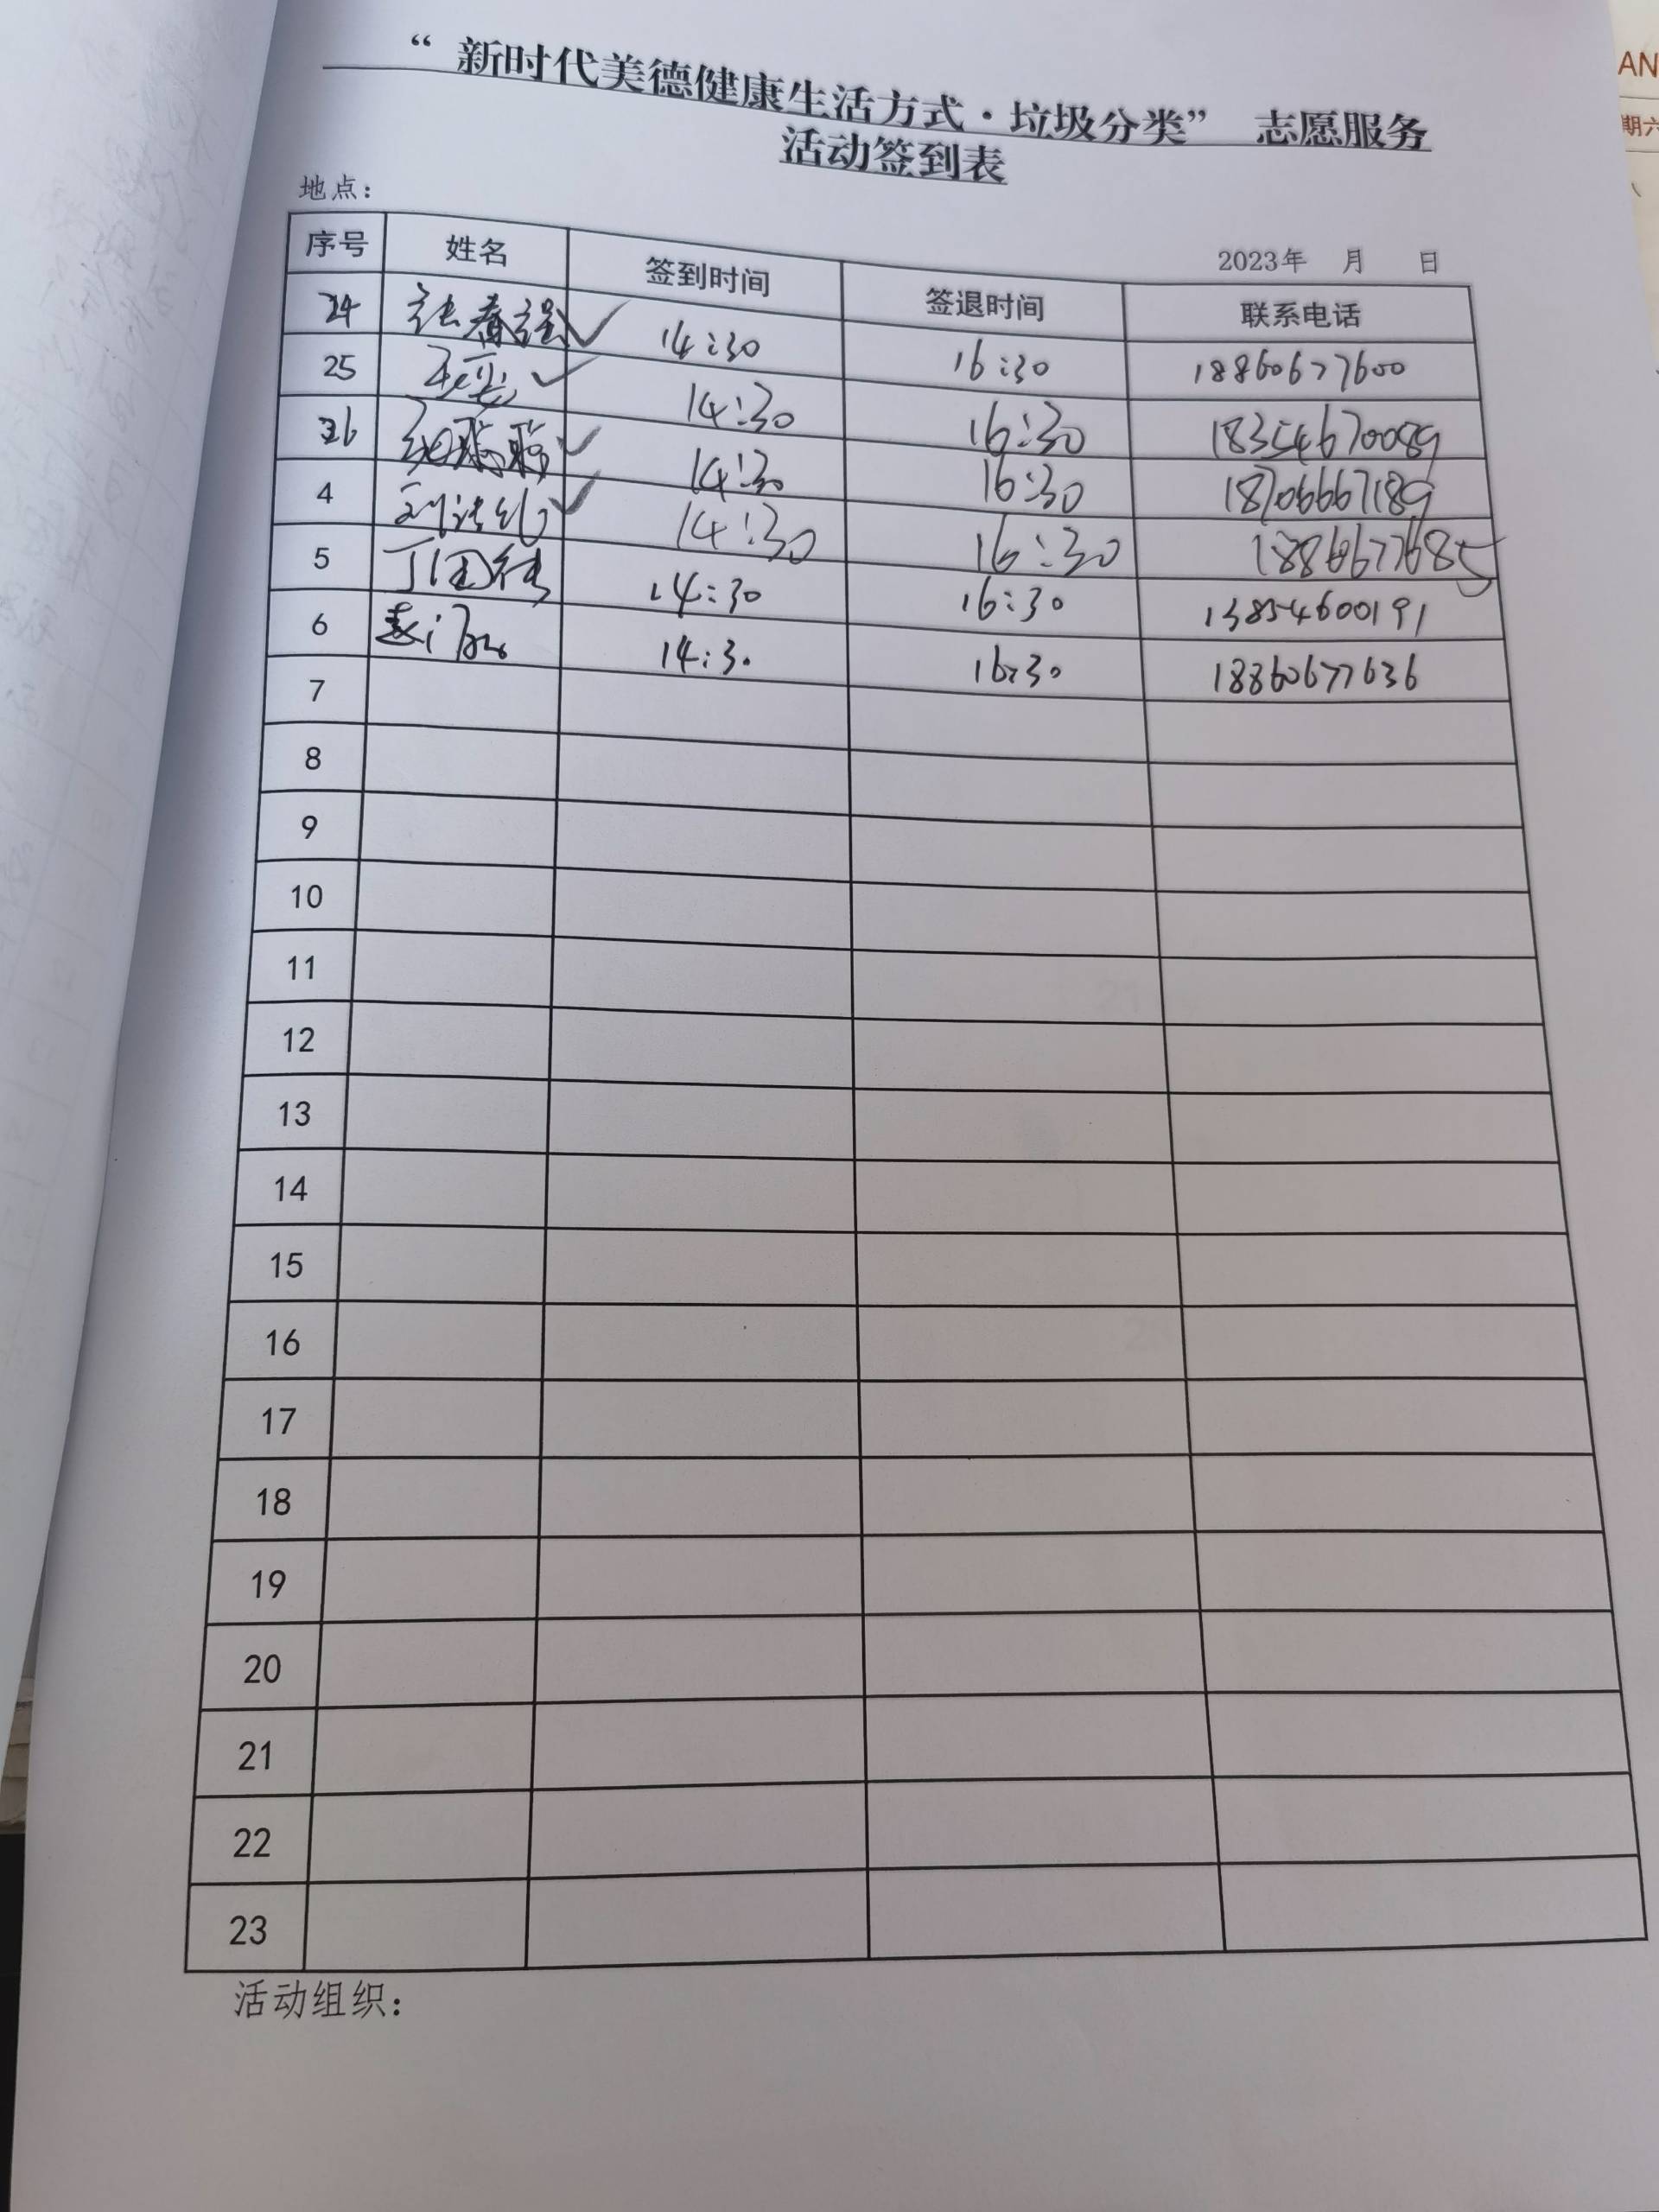 “新时代美德健康生活方式·垃圾分类” 志愿服务
活动签到表
地点：
2023年 月 日
序号 姓名 签到时间 签退时间 联系电话
24 14:30 16:30 18860677600
25 14:30 16:30 18354670089
26 14:30 16:30 18706667189
4 14:30 16:30 18860677685
5 丁国伟 14:30 16:30 13854600191
6 14:30 16:30 18860677636
7
8
9
10
11
12
13
14
15
16
17
18
19
20
21
22
23
活动组织：
AN
期六